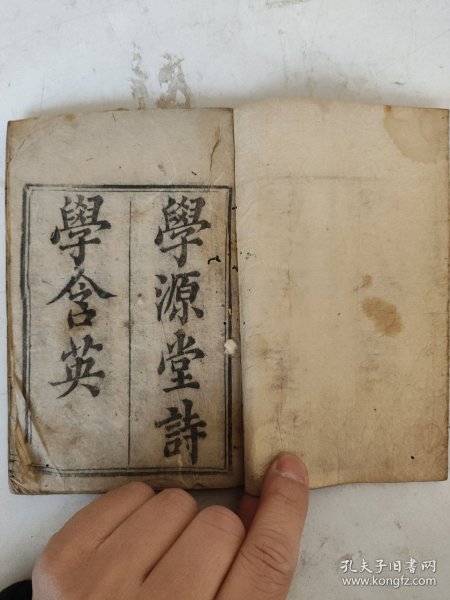 學源堂詩
學含英
孔夫子旧书网
www.kongfz.com